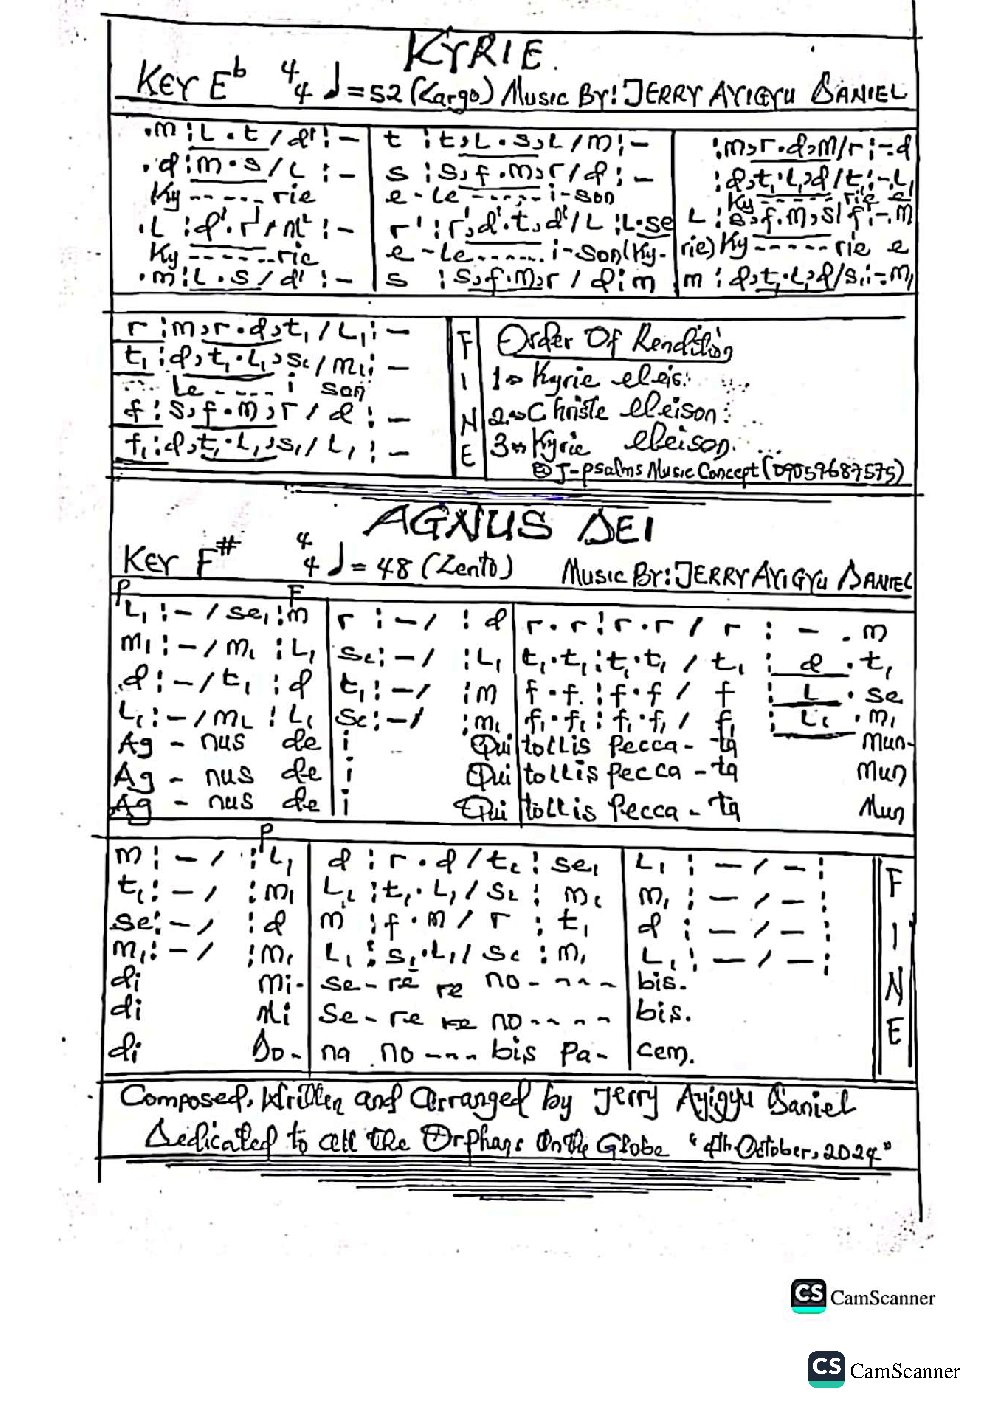 KYRIE.
KEY Eb 4/4 ♩=52 (Largo) Music By: JERRY AYIGYU DANIEL
.m :L . t / d' :- | t :t,L . s,L / m :- | :m,r . d,m / r :-.d
.d :m . s / L :- | s :s,f . m,r / d :- | :d,t₁ . L₁,d / t₁ :-.L₁
Ky ------ rie | e - le ------ i - son | Ky ----- rie e
.L :d' . r' / m' :- | r' :r',d' . t,d' / L :L.se | L :s,f . m,s / f :-.m
Ky ------ rie | e - le ------ i - son (Ky- | rie) Ky ------ rie e
.m :L . s / d' :- | s :s,f . m,r / d :m | .m :d,t₁ . L₁,d / s₁ :-.m₁
r :m,r . d,t₁ / L₁ :- | FINE | Order Of Rendition
t₁ :d,t₁ . L₁,se / m₁ :- | 1. Kyrie eleis: ...
Le ----- i son
f :s,f . m,r / d :- | 2. Christe eleison: ...
f₁ :d,t₁ . L₁,s₁ / L₁ :- | 3. Kyrie eleison. ...
© J-Psalms Music Concept (09057687575)
AGNUS DEI
KEY F# 4/4 ♩= 48 (Lento) Music By: JERRY AYIGYU DANIEL
P F
L₁ :- / se₁ :m | r :- / :d | r . r :r . r / r :- . m
m₁ :- / m₁ :L₁ | se :- / :L₁ | t₁ . t₁ :t₁ . t₁ / t₁ :d . t₁
d :- / t₁ :d | t₁ :- / :m | f . f :f . f / f :L . se
L₁ :- / m₁ :L₁ | se :- / :m₁ | f₁ . f₁ :f₁ . f₁ / f₁ :L₁ . m₁
Ag - nus de | i Qui | tollis Pecca - ta Mun-
Ag - nus de | i Qui | tollis pecca - ta Mun
Ag - nus de | i Qui | tollis Pecca - ta Mun
P
m :- / :L₁ | d :r . d / t₁ :se₁ | L₁ :- / - : | FINE
t₁ :- / :m₁ | L₁ :t₁ . L₁ / se :m₁ | m₁ :- / - :
se :- / :d | m :f . m / r :t₁ | d :- / - :
m₁ :- / :m₁ | L₁ :s₁ . L₁ / se :m₁ | L₁ :- / - :
di Mi- | se - re re no - - - - | bis.
di Mi | se - re re no - - - - | bis.
di Do- | na no --- bis pa- | cem.
Composed, Written and Arranged by Jerry Ayigyu Daniel
Dedicated to all the Orphans On the Globe "4th October, 2024"
CS CamScanner
CS CamScanner